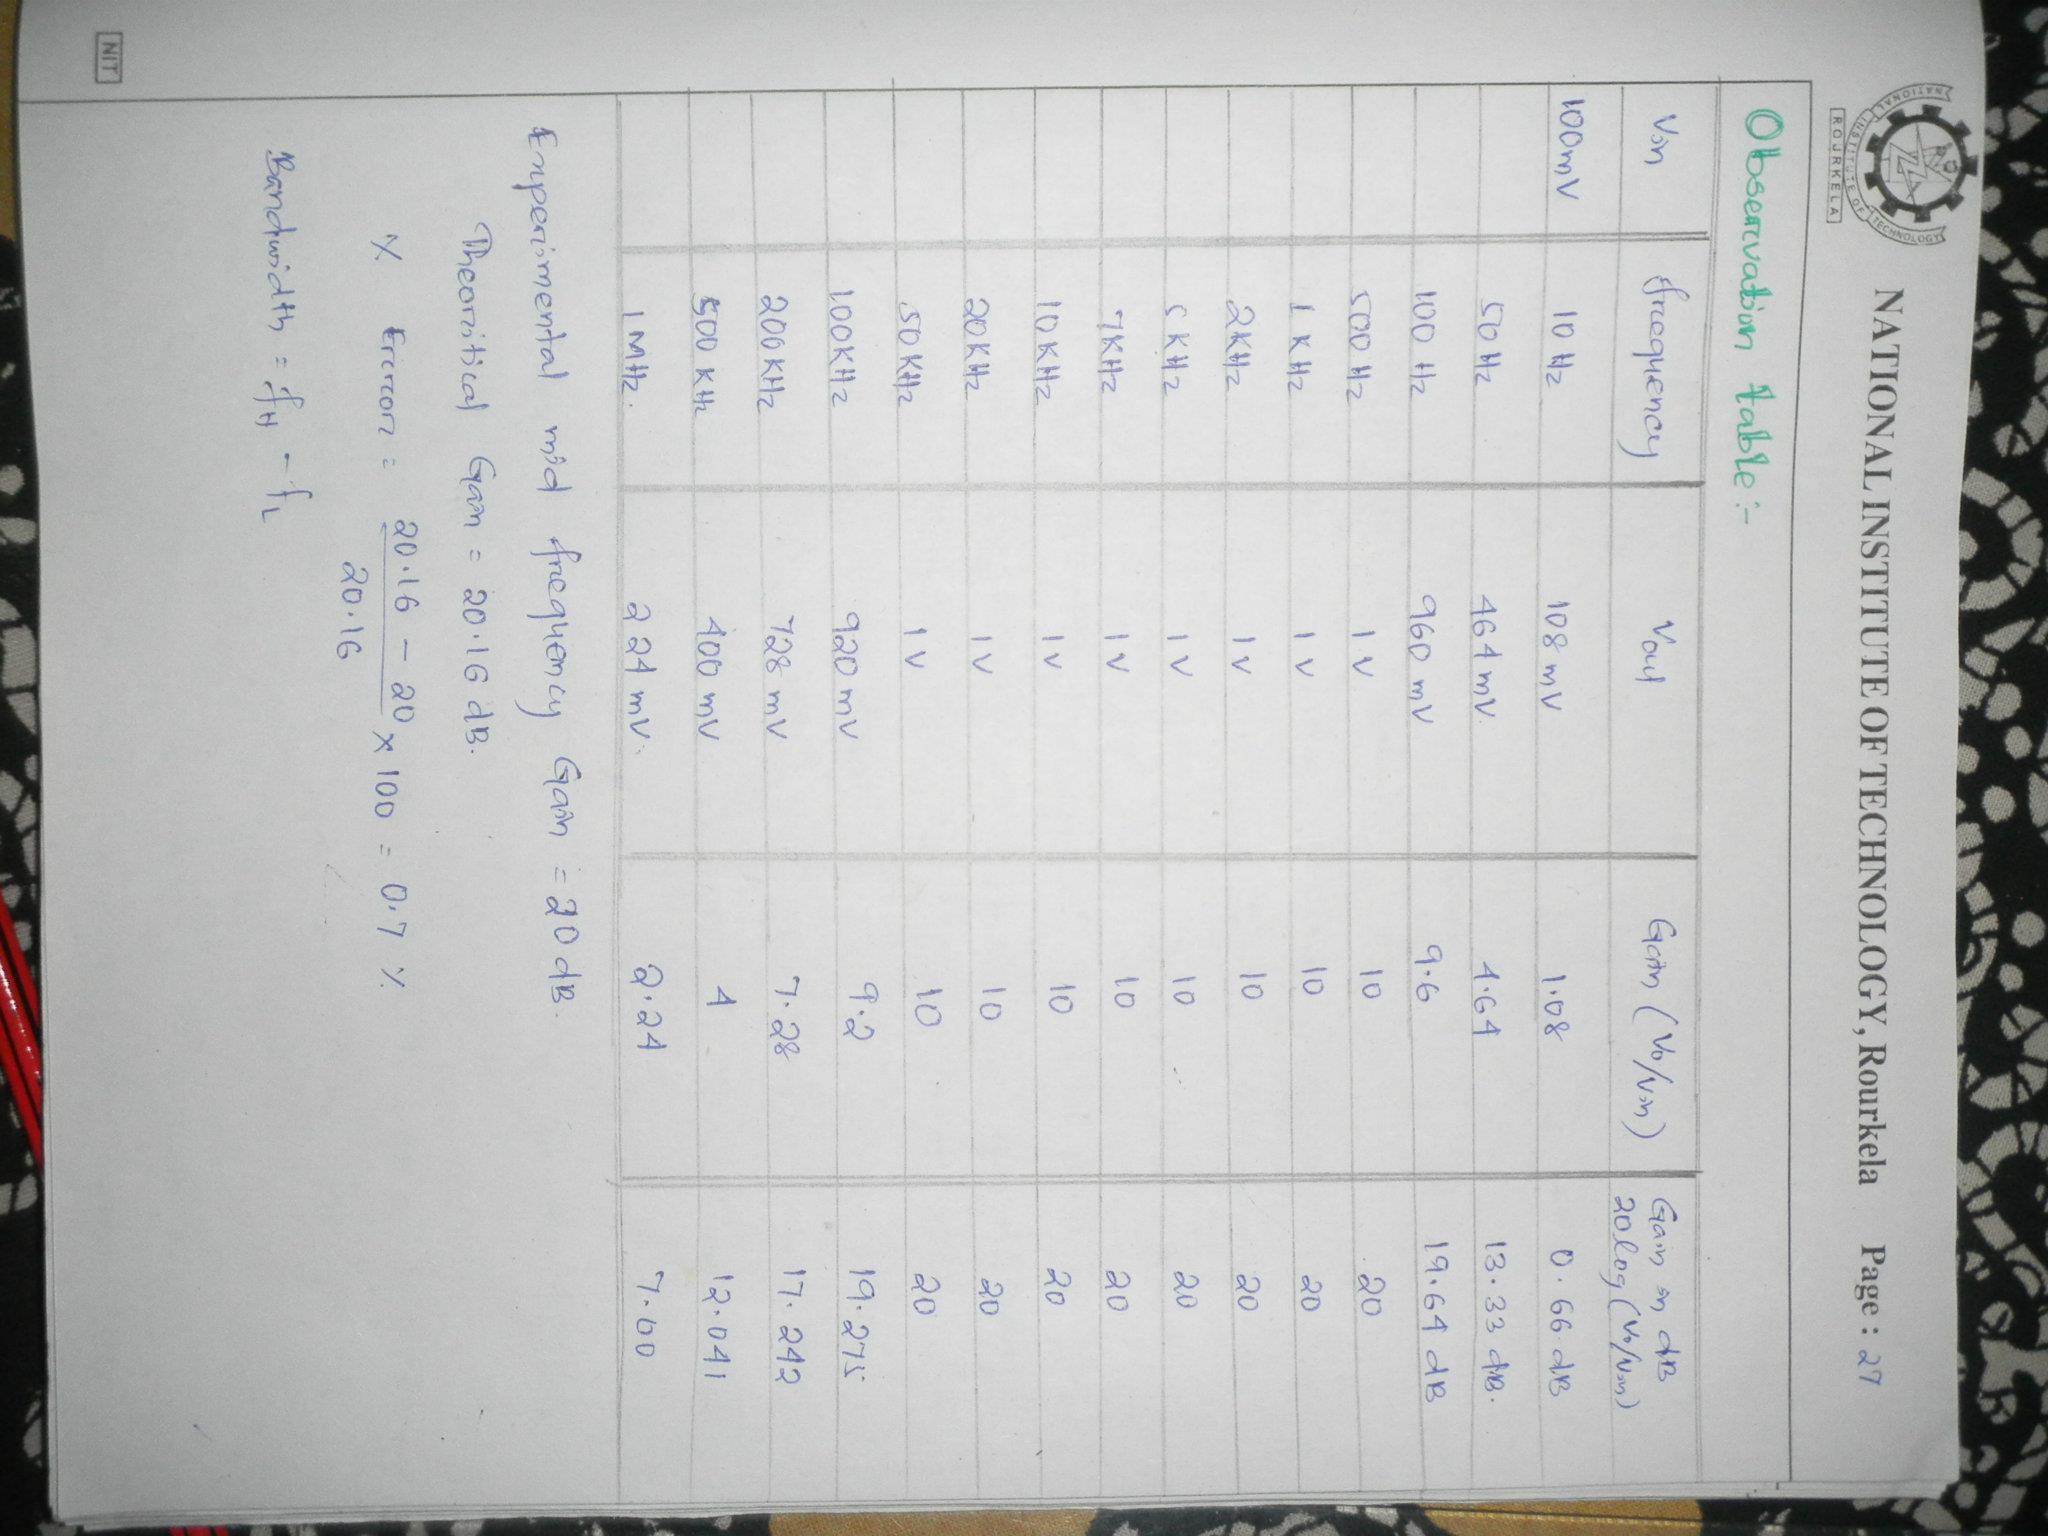 NATIONAL INSTITUTE OF TECHNOLOGY
ROURKELA
NATIONAL INSTITUTE OF TECHNOLOGY, Rourkela Page : 27
Observation table :-
Vin frequency Vout Gain (Vo/Vin) Gain in dB
20 log (Vo/Vin)
100mV 10 Hz 108 mV 1.08 0.66 dB
50 Hz 464 mV. 4.64 13.33 dB.
100 Hz 960 mV 9.6 19.64 dB
500 Hz 1 V 10 20
1 KHz 1 V 10 20
2KHz 1 V 10 20
5 KHz 1 V 10 20
7KHz 1 V 10 20
10 KHz 1 V 10 20
20 KHz 1 V 10 20
50 KHz 1 V 10 20
100KHz 920 mV 9.2 19.275
200 KHz 728 mV 7.28 17.242
500 KHz 400 mV 4 12.041
1 MHz. 224 mV. 2.24 7.00
Experimental mid frequency Gain = 20 dB.
Theoritical Gain = 20.16 dB.
% Error = 20.16 - 20 / 20.16 × 100 = 0.7 %
Bandwidth = fH - fL
NIT